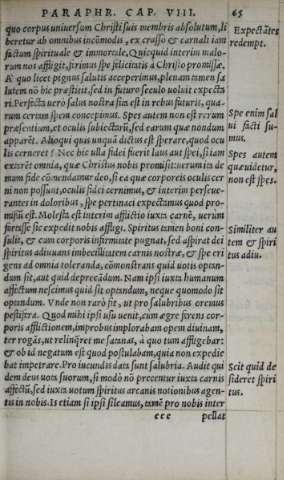 PARAPHR. CAP. VIII. 65
quo corpus uniuersum Christi suis membris absolutum, li
beretur ab omnibus incōmodis, ex crasso & carnali iam
factum spirituale & immortale. Quicquid interim malo-
rum nos affligit, firmus spe felicitatis à Christo promissæ.
Ac quo licet pignus salutis acceperimus, plenam tamen sa
lutem nō hic præstitit, sed in futuro seculo uoluit expecta
ri. Perfecta uerò salus nostra sita est in rebus futuris, qua-
rum certam spem concepimus. Spes autem non est rerum
præsentium, et oculis subiectarū, sed earum quæ nondum
apparēt. Alioqui quis unquā dictus est sperare, quod ocu
lis cerneret? Nec hic ulla fidei fuerit laus aut spei, si iam
exterē omnia, quæ Christus nobis promisit.
mum fide cōmendamur deo, si ea quæ corporeis oculis cer
ni non possunt, oculis fidei cernimus, & interim perseue-
rantes in doloribus, spe pertinaci expectamus quod pro-
missū est. Molesta est interim afflictio iuxta carnē, uerùm
fortasse sic expedit nobis affligi. Spiritus tamen boni con-
sulit, & cum corporis infirmitate pugnat, sed aspirat dei
spiritus adiuuans imbecillitatem carnis nostræ, & spe eri
gens ad omnia toleranda, cōmonstrans quid uotis optan-
dum sit, aut quid deprecādum. Nam ipsi iuxta humanum
affectum nescimus quid sit optandum, neque quomodo sit
optandum. Vnde non rarò fit, ut pro salubribus oremus
pestifera. Quod mihi ipsi usu uenit, cum ægre ferens cor-
poris afflictionem, improbus implorabam opem diuinam,
ter rogās, ut relinqret me satanas, à quo tum affligebar:
& ob id negatum est quod postulabam, quia non expedie
bat impetrare. Pro iucundis data sunt salubria. Audit qui
dem deus uota suorum, si modò nō precentur iuxta carnis
affectū, sed iuxta uotum spiritus arcanis notionibus agen-
tis in nobis. Is etiam si ipsi sileamus, tamē pro nobis inter
eee pellat
Expectātes
redempt.
Spe enim sal
ui facti su-
mus.
Spes autem
quæ uidetur,
non est spes.
Similiter au
tem & spiri
tus adiu.
Scit quid de
sideret spiri
tus.